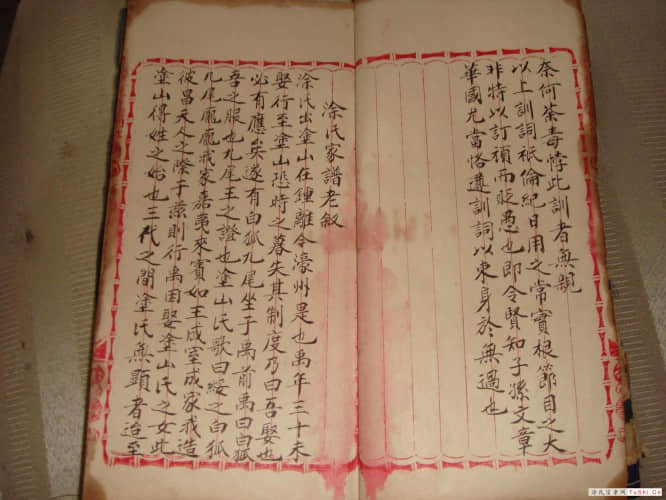 奈何荼毒悖此訓者無親
以上訓詞祇倫紀日用之常實根節目之大
非特以訂頑而貶愚也即令賢知子孫文章
華國尤當恪遵訓詞以束身於無過也
涂氏家譜老敘
涂氏出塗山在鍾離今濠州是也禹年三十未
娶行至塗山恐時之暮失其制度乃曰吾娶也
必有應矣遂有白狐九尾坐于禹前禹曰白狐
吾之服也九尾王之證也塗山氏歌曰綏之白狐
九尾龐龐我家嘉夷來賓如王成室成家我造
彼昌天人之際于茲則行禹因娶塗山氏之女此
塗山得姓之始也三代之間塗氏無顯者迨至